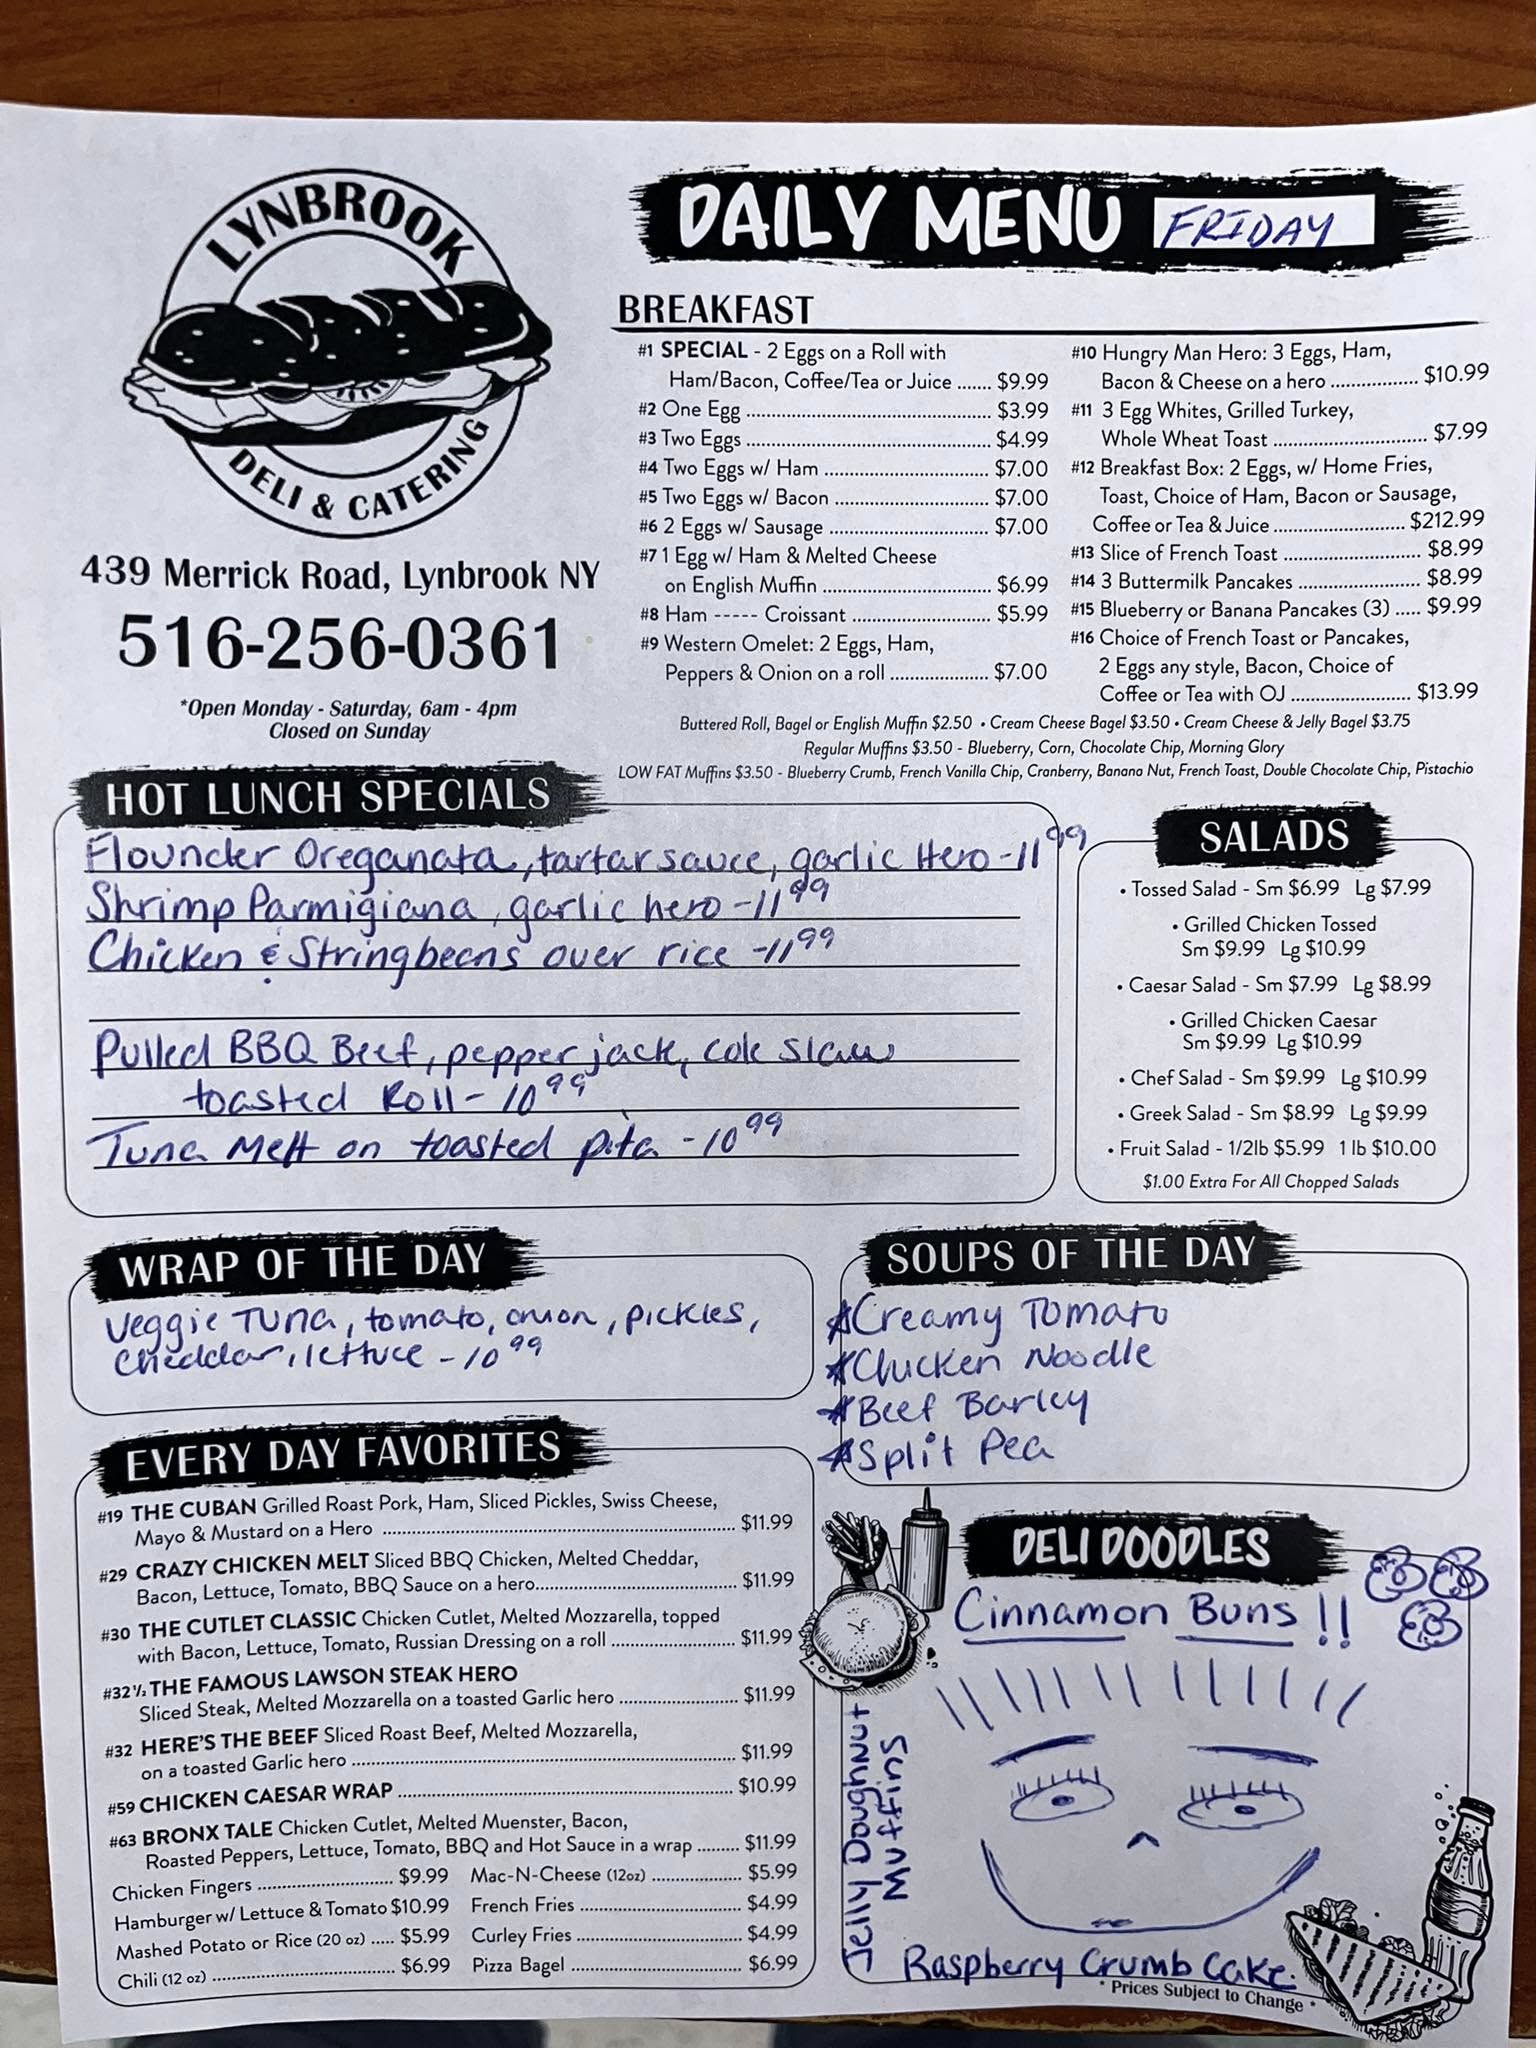 LYNBROOK
DELI & CATERING
439 Merrick Road, Lynbrook NY
516-256-0361
*Open Monday - Saturday, 6am - 4pm
Closed on Sunday
DAILY MENU FRIDAY
BREAKFAST
#1 SPECIAL - 2 Eggs on a Roll with
Ham/Bacon, Coffee/Tea or Juice ...... $9.99
#2 One Egg ........ $3.99
#3 Two Eggs ........ $4.99
#4 Two Eggs w/ Ham ........ $7.00
#5 Two Eggs w/ Bacon ........ $7.00
#6 2 Eggs w/ Sausage ........ $7.00
#7 1 Egg w/ Ham & Melted Cheese
on English Muffin ........ $6.99
#8 Ham ----- Croissant ........ $5.99
#9 Western Omelet: 2 Eggs, Ham,
Peppers & Onion on a roll ........ $7.00
#10 Hungry Man Hero: 3 Eggs, Ham,
Bacon & Cheese on a hero ........ $10.99
#11 3 Egg Whites, Grilled Turkey,
Whole Wheat Toast ........ $7.99
#12 Breakfast Box: 2 Eggs, w/ Home Fries,
Toast, Choice of Ham, Bacon or Sausage,
Coffee or Tea & Juice ........ $212.99
#13 Slice of French Toast ........ $8.99
#14 3 Buttermilk Pancakes ........ $8.99
#15 Blueberry or Banana Pancakes (3) ..... $9.99
#16 Choice of French Toast or Pancakes,
2 Eggs any style, Bacon, Choice of
Coffee or Tea with OJ ........ $13.99
Buttered Roll, Bagel or English Muffin $2.50 • Cream Cheese Bagel $3.50 • Cream Cheese & Jelly Bagel $3.75
Regular Muffins $3.50 - Blueberry, Corn, Chocolate Chip, Morning Glory
LOW FAT Muffins $3.50 - Blueberry Crumb, French Vanilla Chip, Cranberry, Banana Nut, French Toast, Double Chocolate Chip, Pistachio
HOT LUNCH SPECIALS
Flounder Oreganata, tartar sauce, garlic Hero - 11 99
Shrimp Parmigiana, garlic hero - 11 99
Chicken & Stringbeans over rice - 11 99
Pulled BBQ Beef, pepper jack, cole slaw
toasted Roll - 10 99
Tuna Melt on toasted pita - 10 99
SALADS
• Tossed Salad - Sm $6.99 Lg $7.99
• Grilled Chicken Tossed
Sm $9.99 Lg $10.99
• Caesar Salad - Sm $7.99 Lg $8.99
• Grilled Chicken Caesar
Sm $9.99 Lg $10.99
• Chef Salad - Sm $9.99 Lg $10.99
• Greek Salad - Sm $8.99 Lg $9.99
• Fruit Salad - 1/2lb $5.99 1 lb $10.00
$1.00 Extra For All Chopped Salads
WRAP OF THE DAY
Veggie Tuna, tomato, onion, pickles,
cheddar, lettuce - 10 99
SOUPS OF THE DAY
*Creamy Tomato
*Chicken Noodle
*Beef Barley
*Split Pea
EVERY DAY FAVORITES
#19 THE CUBAN Grilled Roast Pork, Ham, Sliced Pickles, Swiss Cheese,
Mayo & Mustard on a Hero ........ $11.99
#29 CRAZY CHICKEN MELT Sliced BBQ Chicken, Melted Cheddar,
Bacon, Lettuce, Tomato, BBQ Sauce on a hero ........ $11.99
#30 THE CUTLET CLASSIC Chicken Cutlet, Melted Mozzarella, topped
with Bacon, Lettuce, Tomato, Russian Dressing on a roll ........ $11.99
#32 1/2 THE FAMOUS LAWSON STEAK HERO
Sliced Steak, Melted Mozzarella on a toasted Garlic hero ........ $11.99
#32 HERE'S THE BEEF Sliced Roast Beef, Melted Mozzarella,
on a toasted Garlic hero ........ $11.99
#59 CHICKEN CAESAR WRAP ........ $10.99
#63 BRONX TALE Chicken Cutlet, Melted Muenster, Bacon,
Roasted Peppers, Lettuce, Tomato, BBQ and Hot Sauce in a wrap ........ $11.99
Chicken Fingers ........ $9.99 Mac-N-Cheese (12oz) ........ $5.99
Hamburger w/ Lettuce & Tomato $10.99 French Fries ........ $4.99
Mashed Potato or Rice (20 oz) ..... $5.99 Curley Fries ........ $4.99
Chili (12 oz) ........ $6.99 Pizza Bagel ........ $6.99
DELI DOODLES
Cinnamon Buns !!
Jelly Doughnut
Muffins
Raspberry Crumb Cake.
* Prices Subject to Change *